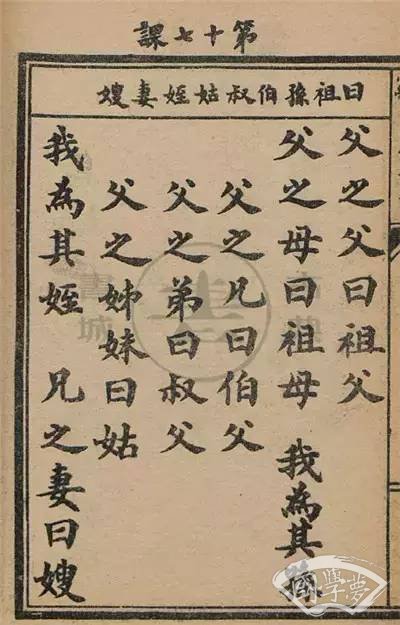 第十七課
曰祖孫伯叔姑姪妻嫂
父之父曰祖父
父之母曰祖母　我為其孫
父之兄曰伯父
父之弟曰叔父
父之姊妹曰姑
我為其姪　兄之妻曰嫂
書城
國學夢